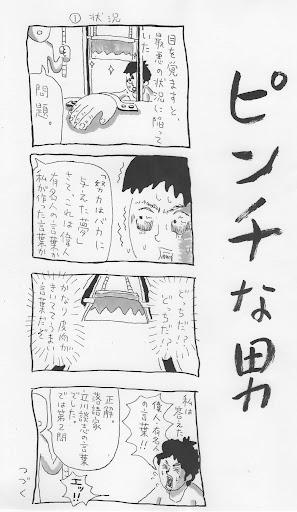 ピンチな男
① 状況
目を覚ますと、
最悪の状況に陥って
いた
問題。
「努力はバカに
与えた夢」
さて、これは偉人
有名人の言葉か
私が作った言葉か
どっちだ!?
どっちだ!?
かなり皮肉が
きいててうまい
言葉だぞ
私は答えた
偉人、有名人
の言葉!!
正解。
落語家
立川談志の言葉
でした。
では第2問
エッ!!
つづく